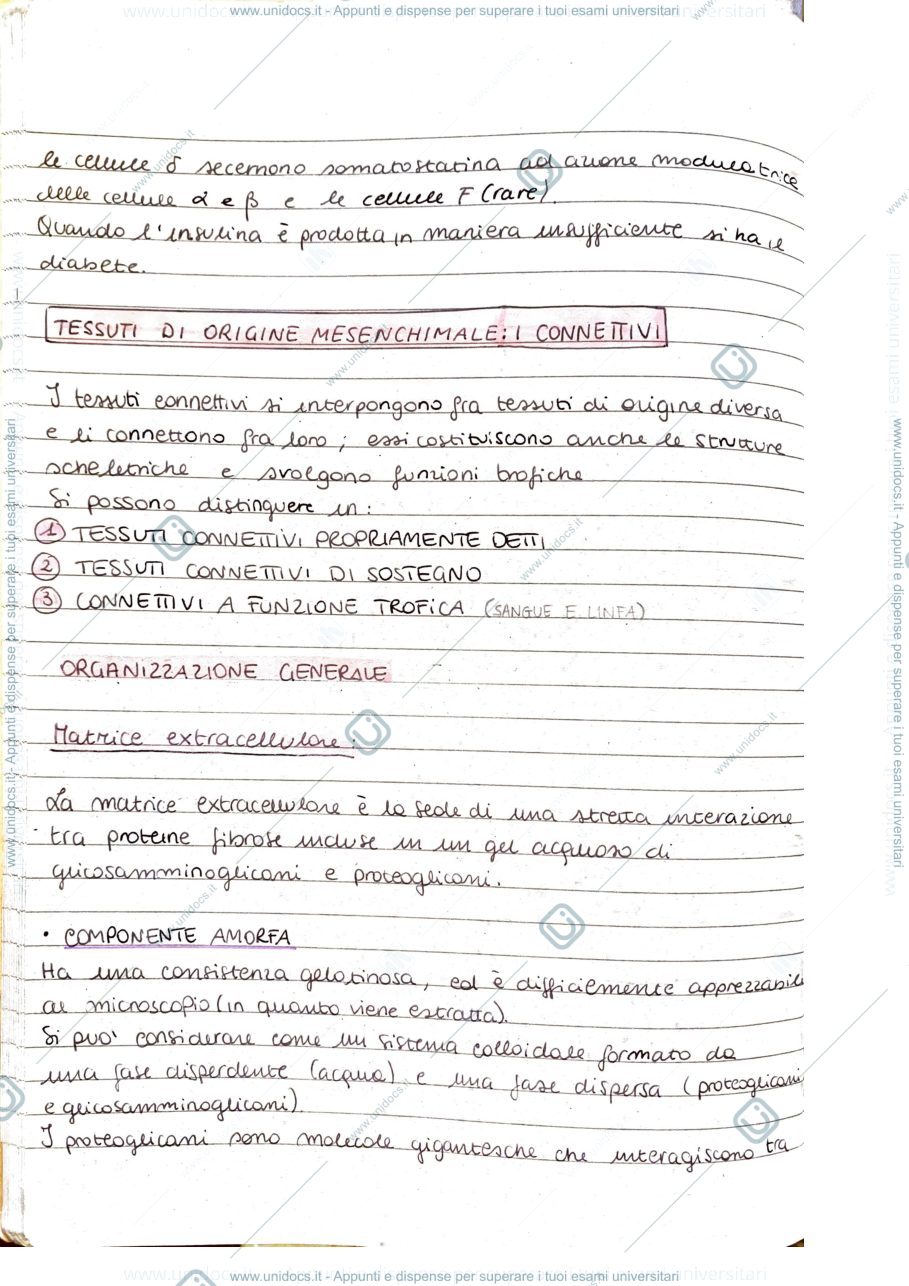 www.unidocs.it - Appunti e dispense per superare i tuoi esami universitari
le cellule δ secernono somatostatina ad azione modulatrice
delle cellule α e β e le cellule F (rare).
Quando l'insulina è prodotta in maniera insufficiente si ha il
diabete.
TESSUTI DI ORIGINE MESENCHIMALE: I CONNETTIVI
I tessuti connettivi si interpongono fra tessuti di origine diversa
e li connettono fra loro; essi costituiscono anche le strutture
scheletriche e svolgono funzioni trofiche
Si possono distinguere in:
1 TESSUTI CONNETTIVI PROPRIAMENTE DETTI
2 TESSUTI CONNETTIVI DI SOSTEGNO
3 CONNETTIVI A FUNZIONE TROFICA (SANGUE E LINFA)
ORGANIZZAZIONE GENERALE
Matrice extracellulare:
La matrice extracellulare è la sede di una stretta interazione
tra proteine fibrose incluse in un gel acquoso di
glicosamminoglicani e proteoglicani.
• COMPONENTE AMORFA
Ha una consistenza gelatinosa, ed è difficilmente apprezzabile
al microscopio (in quanto viene estratta).
Si può considerare come un sistema colloidale formato da
una fase disperdente (acqua) e una fase dispersa (proteoglicani
e glicosamminoglicani).
I proteoglicani sono molecole gigantesche che interagiscono tra
www.unidocs.it - Appunti e dispense per superare i tuoi esami universitari